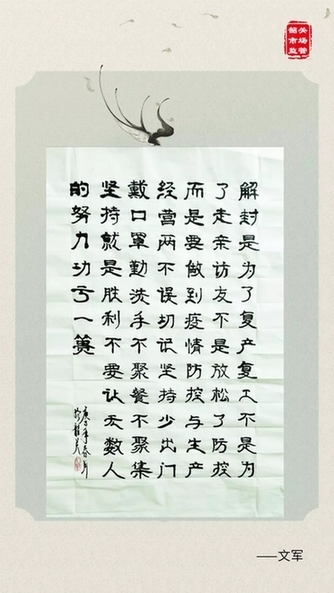 韶关
市场
监管
解封是为了复产复工不是为
了走亲访友不是放松了防控
而是要做到疫情防控与生产
经营两不误切记坚持少出门
戴口罩勤洗手不聚餐不聚集
坚持就是胜利不要认无数人
的努力功亏一篑
庚子年春月
於韶关
——文军